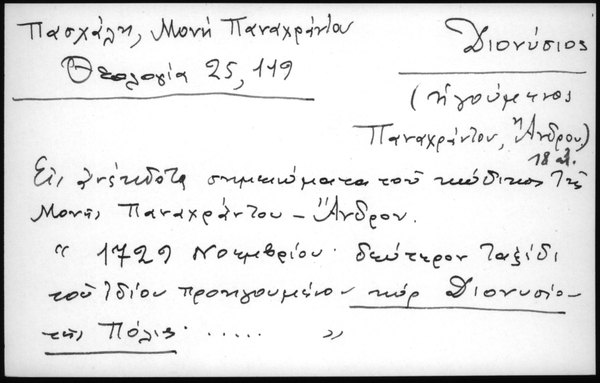 Πασχάλη, Μονή Παναχράντου
Θεολογία 25, 119
Διονύσιος
(ἡγούμενος
Παναχράντου, Ἄνδρου)
18 αἰ.
Εἰς ἀνέκδοτα σημειώματα τοῦ κώδικος τῆς
Μονῆς Παναχράντου - Ἄνδρου.
" 1729 Νοεμβρίου· δεύτερον ταξίδι
τοῦ ἰδίου προηγουμένου κὺρ Διονυσίου
τῆς Πόλις ..... "